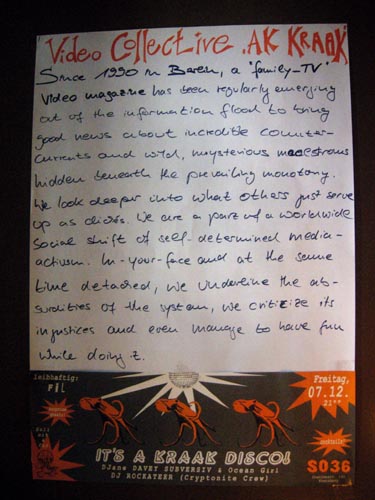 Video Collective .AK KRAAK
Since 1990 in Berlin, a "family-TV"
Video magazine has been regularly emerging
out of the information flood to bring
good news about incredible counter-
currents and wild, mysterious maelstroms
hidden beneath the prevailing monotony.
We look deeper into what others just serve
up as clichés. We are a part of a worldwide
Social shift of self-determined media-
activism. In-your-face and at the same
time detached, we underline the ab-
surdities of the system, we criticize its
injustices and even manage to have fun
while doing it.
leibhaftig:
FIL
Freitag,
07.12.
21°°
IT'S A KRAAK DISCO!
DJane DAVEY SUBVERSIV & Ocean Girl
DJ ROCKATEER (Cryptonite Crew)
cocktails!
SO36